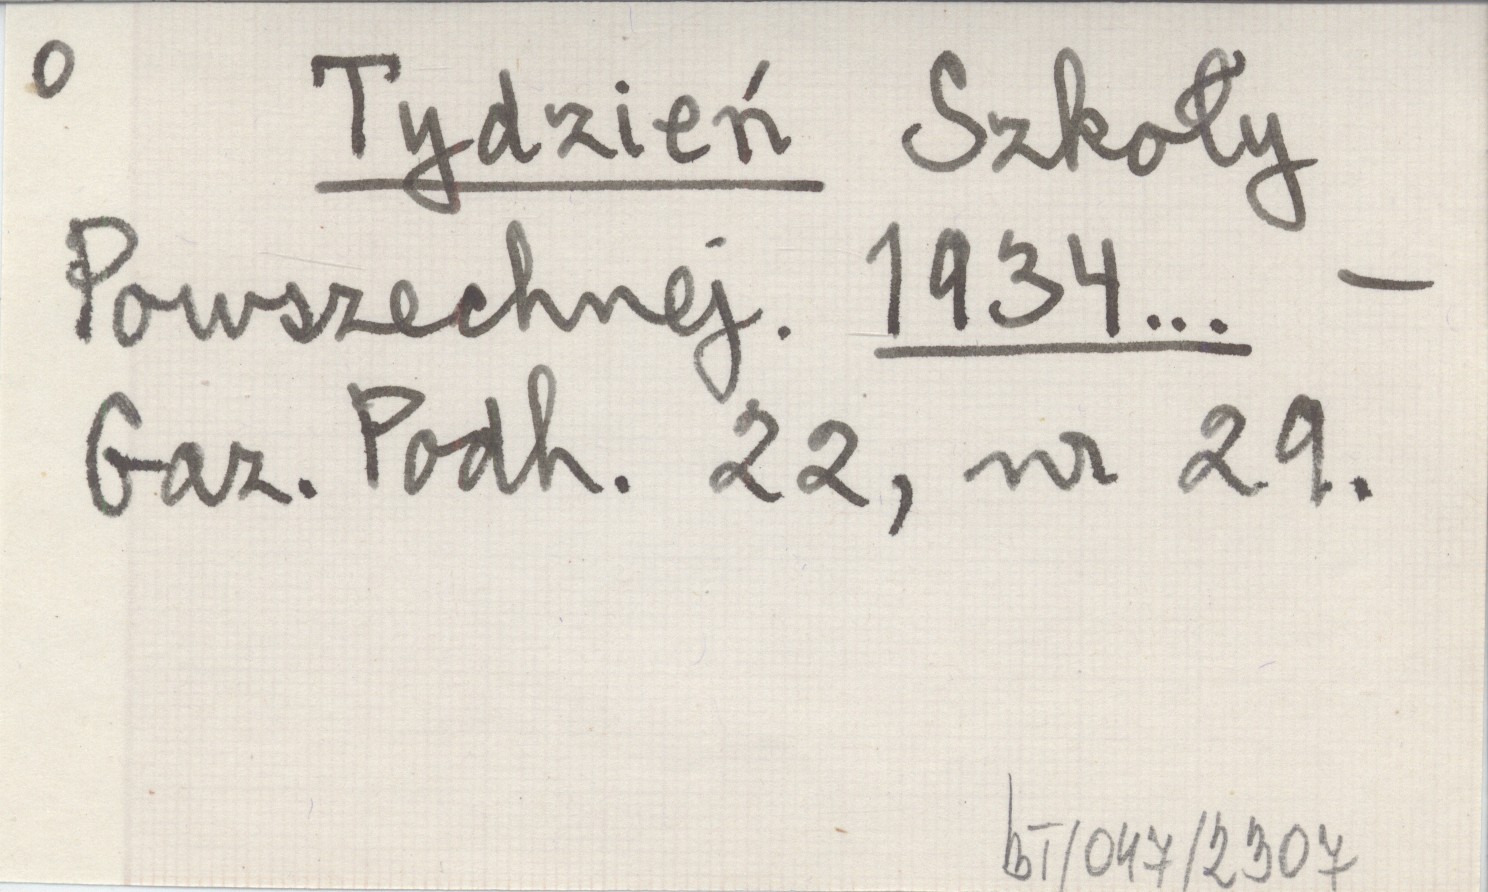 o Tydzień Szkoły
Powszechnej. 1934... –
Gaz. Podh. 22, nr 29.
bT/047/2307